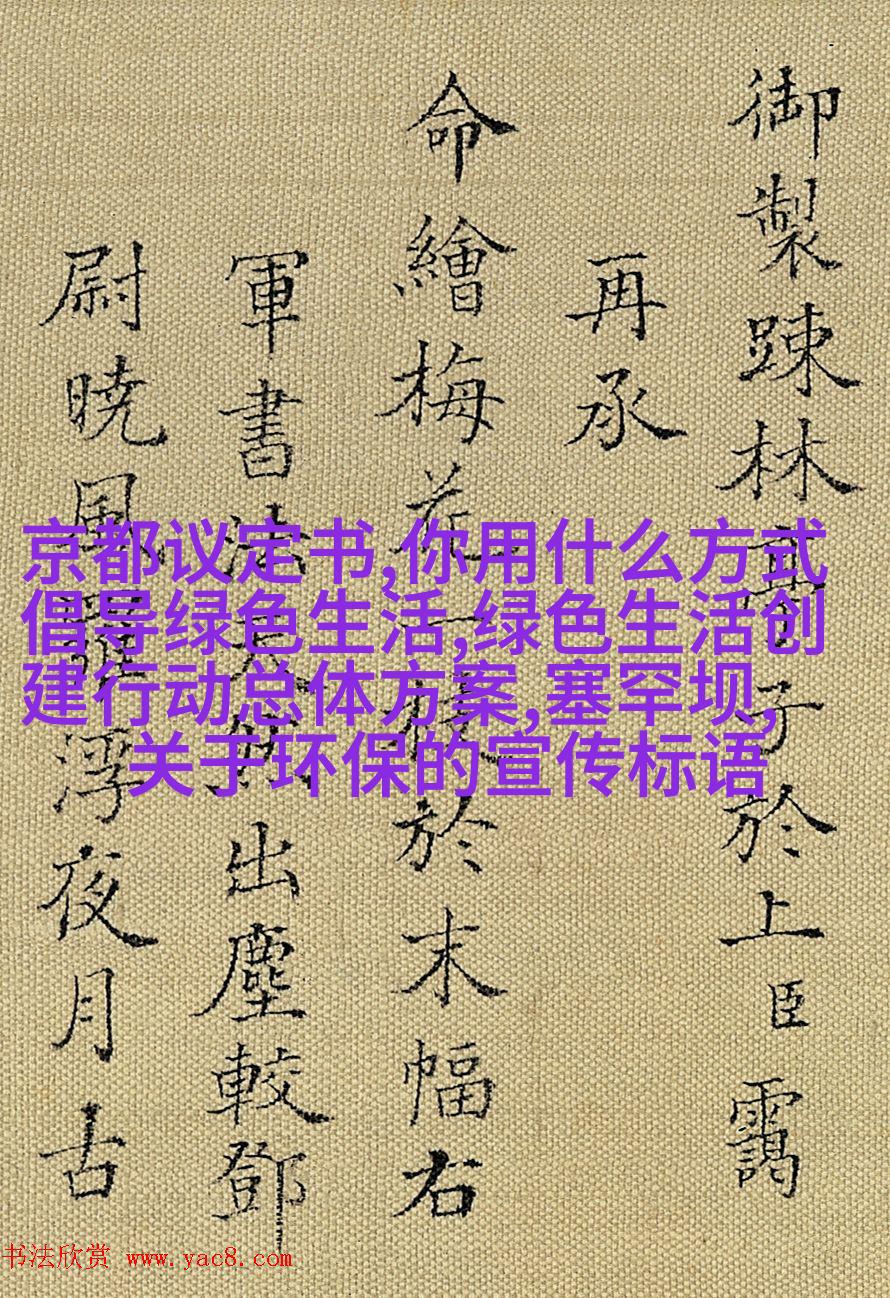 御製踈林子於上臣靄
再承
命繪梅花一於末幅右
軍書法出塵較鄧
尉暁風浮夜月古
京都议定书,你用什么方式
倡导绿色生活,绿色生活创
建行动总体方案,塞罕坝,
关于环保的宣传标语
书法欣赏 www.yac8.com